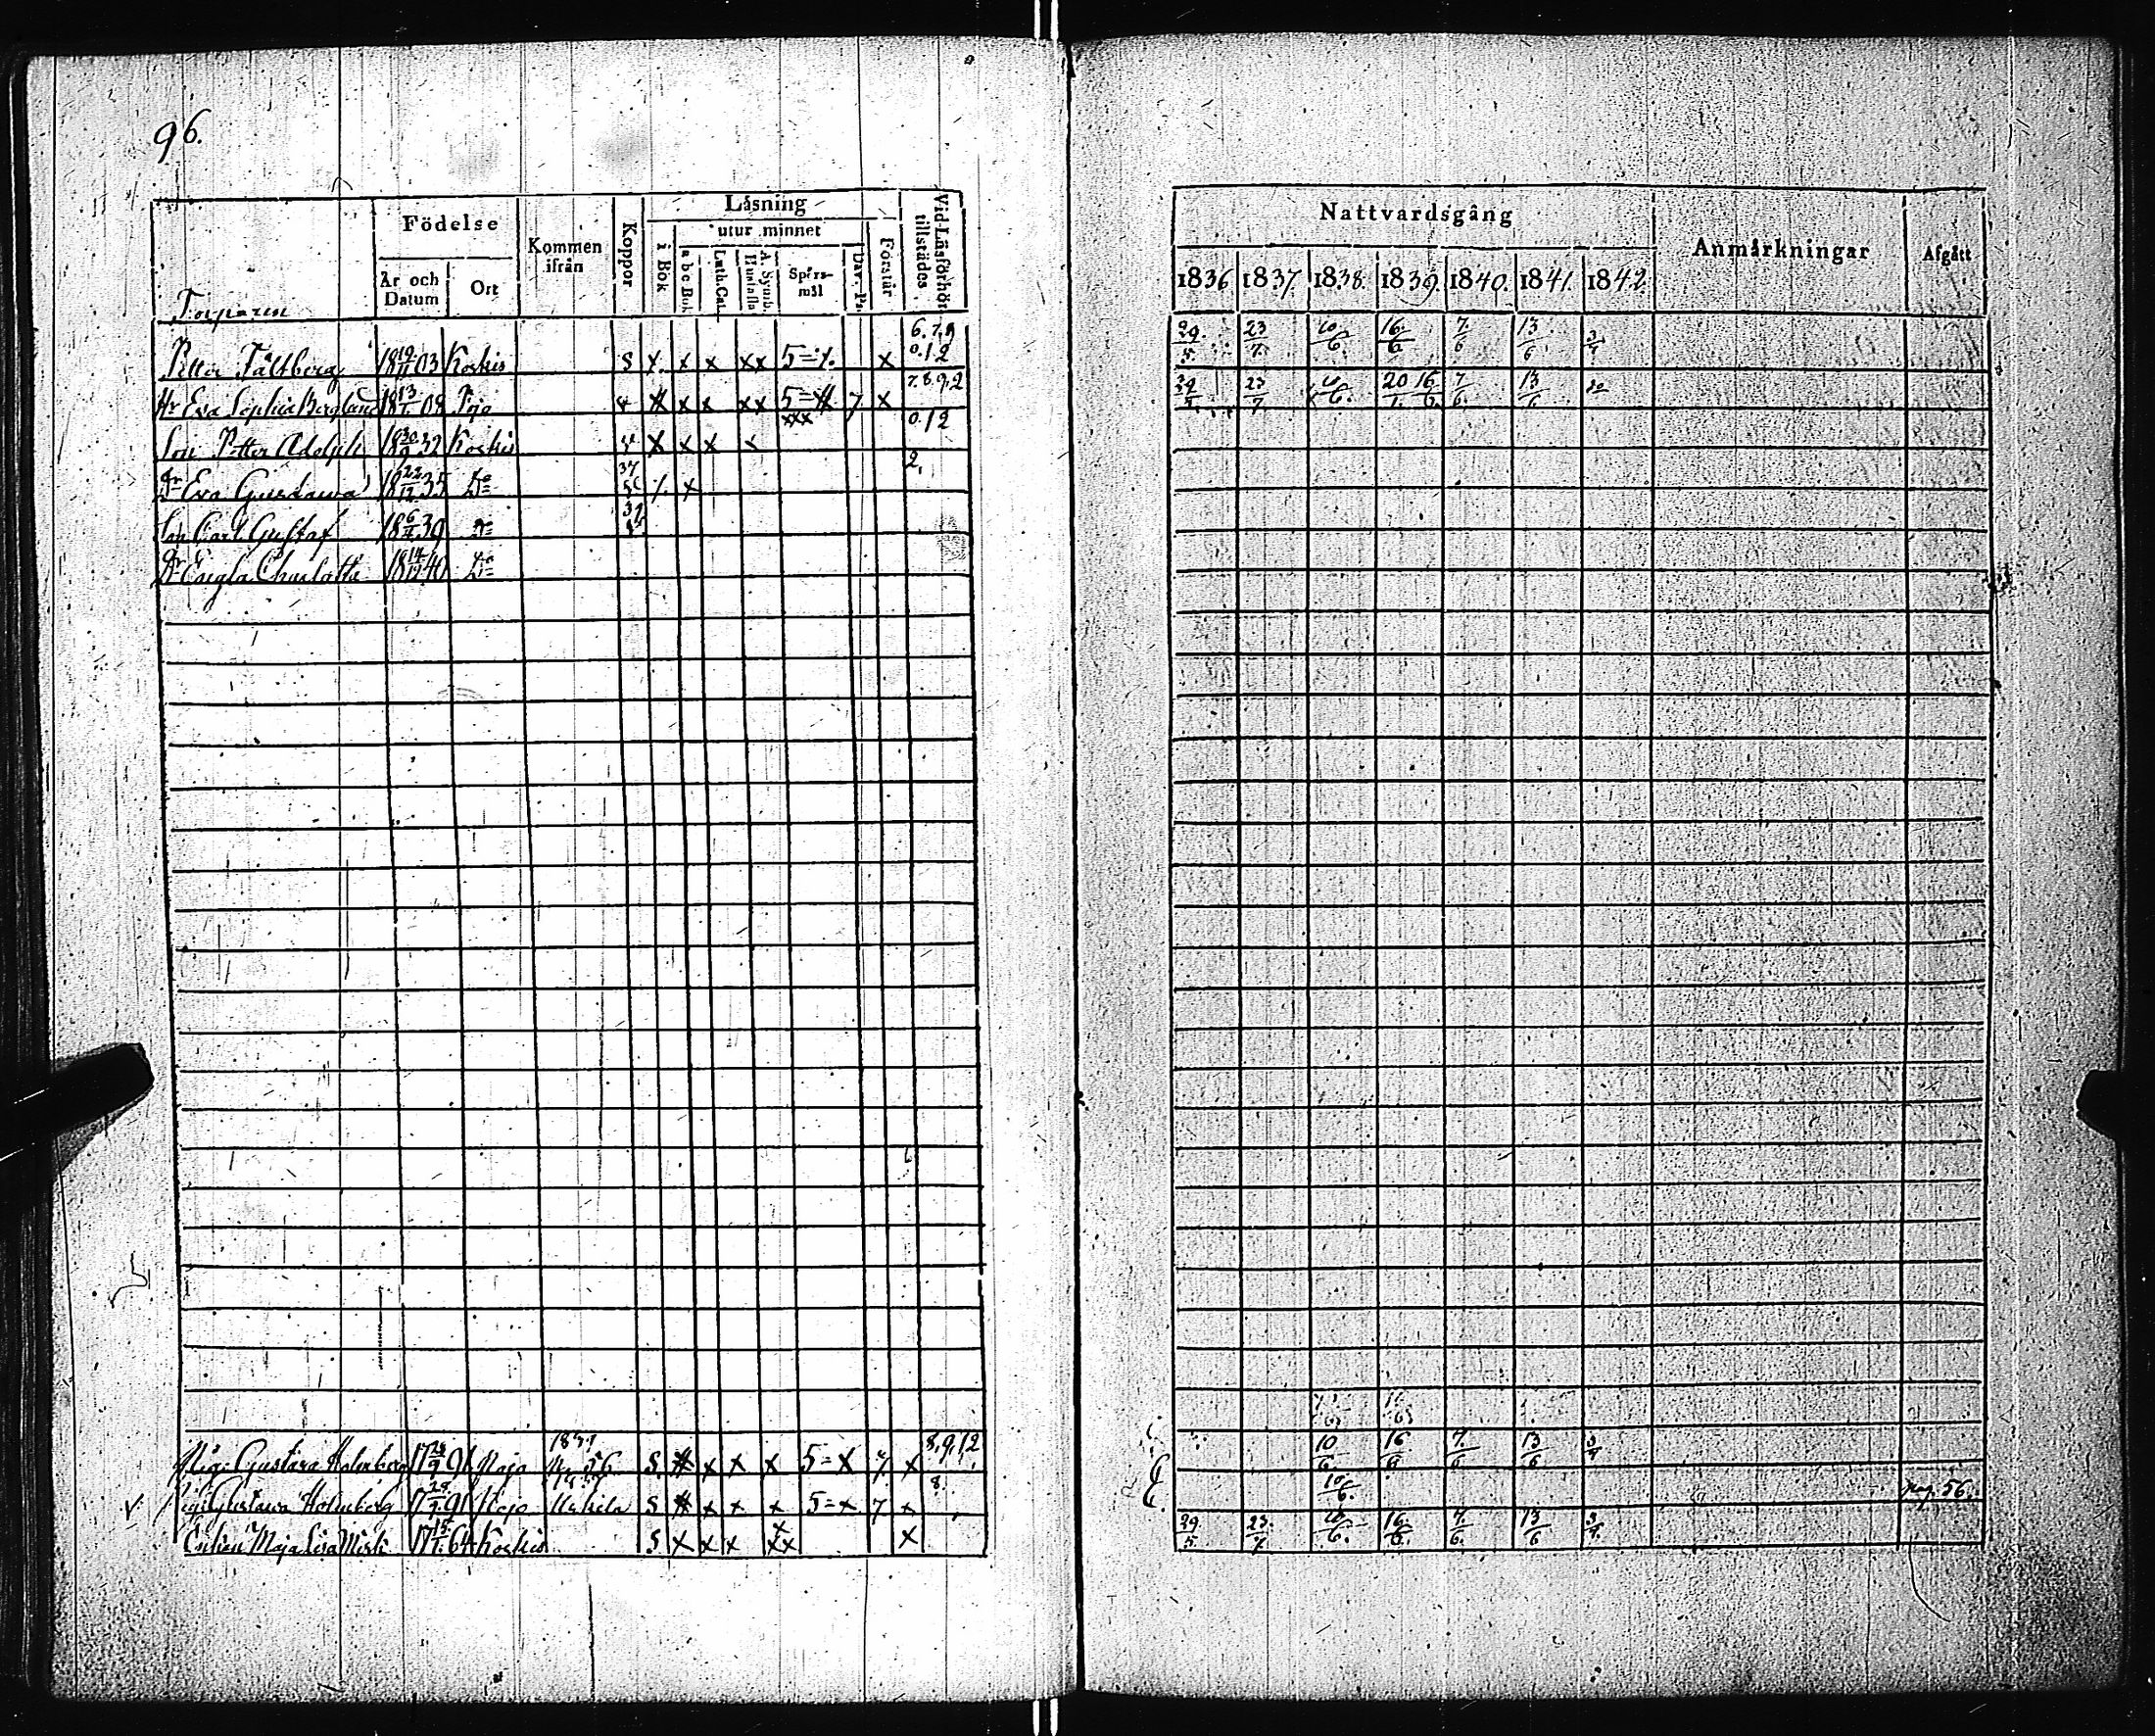 96.
Födelse
Kommen ifrån
Koppor
Läsning
utur minnet
i Bok
a b c Bok
Luth. Cat.
A. Symb. Hustafla
Spörs-mål
Dav. Ps.
Förstår
Vid Läsförhör tillstädes
År och Datum
Ort
Torparen
Nattvardsgång
Anmärkningar
Afgått
1836 1837. 1838. 1839. 1840. 1841. 1842.
Petter Fältberg 18 19/11 03 Koskis S x x x xx 5= x 6.7.9 0.12 29/5 23/7 10/6 16/6 7/6 13/6 3/4
Hu Eva Sophia Berglund 18 13/1 08 Pojo x x xx 5= xxx 7 x 7.8.9.2 29/5 23/7 10/6 20 16/6 7/6 13/6
Son Petter Adolph 18 30/9 32 Koskis x x x x 0.12
Dr Eva Gustava 18 22/12 35 Do 37 x 2.
Son Carl Gustaf 18 6/4 39 Do
Dr Engla Charlotta 18 14/12 40 Do
Pig. Gustava Holmberg 17 91 Pojo 56 S x x x 5= x 7 x 8,9,12 10/6 16/6 7/6 13/6 3/4
Pig. Gustava Holmberg 17 91 Pojo S x x x 5= x 7 x 8. 10/6 pag. 56.
Enkan Maja Lisa 17 64 Koskis S x x x xx x 29/5 23/7 10/6 16/6 7/6 13/6 3/4